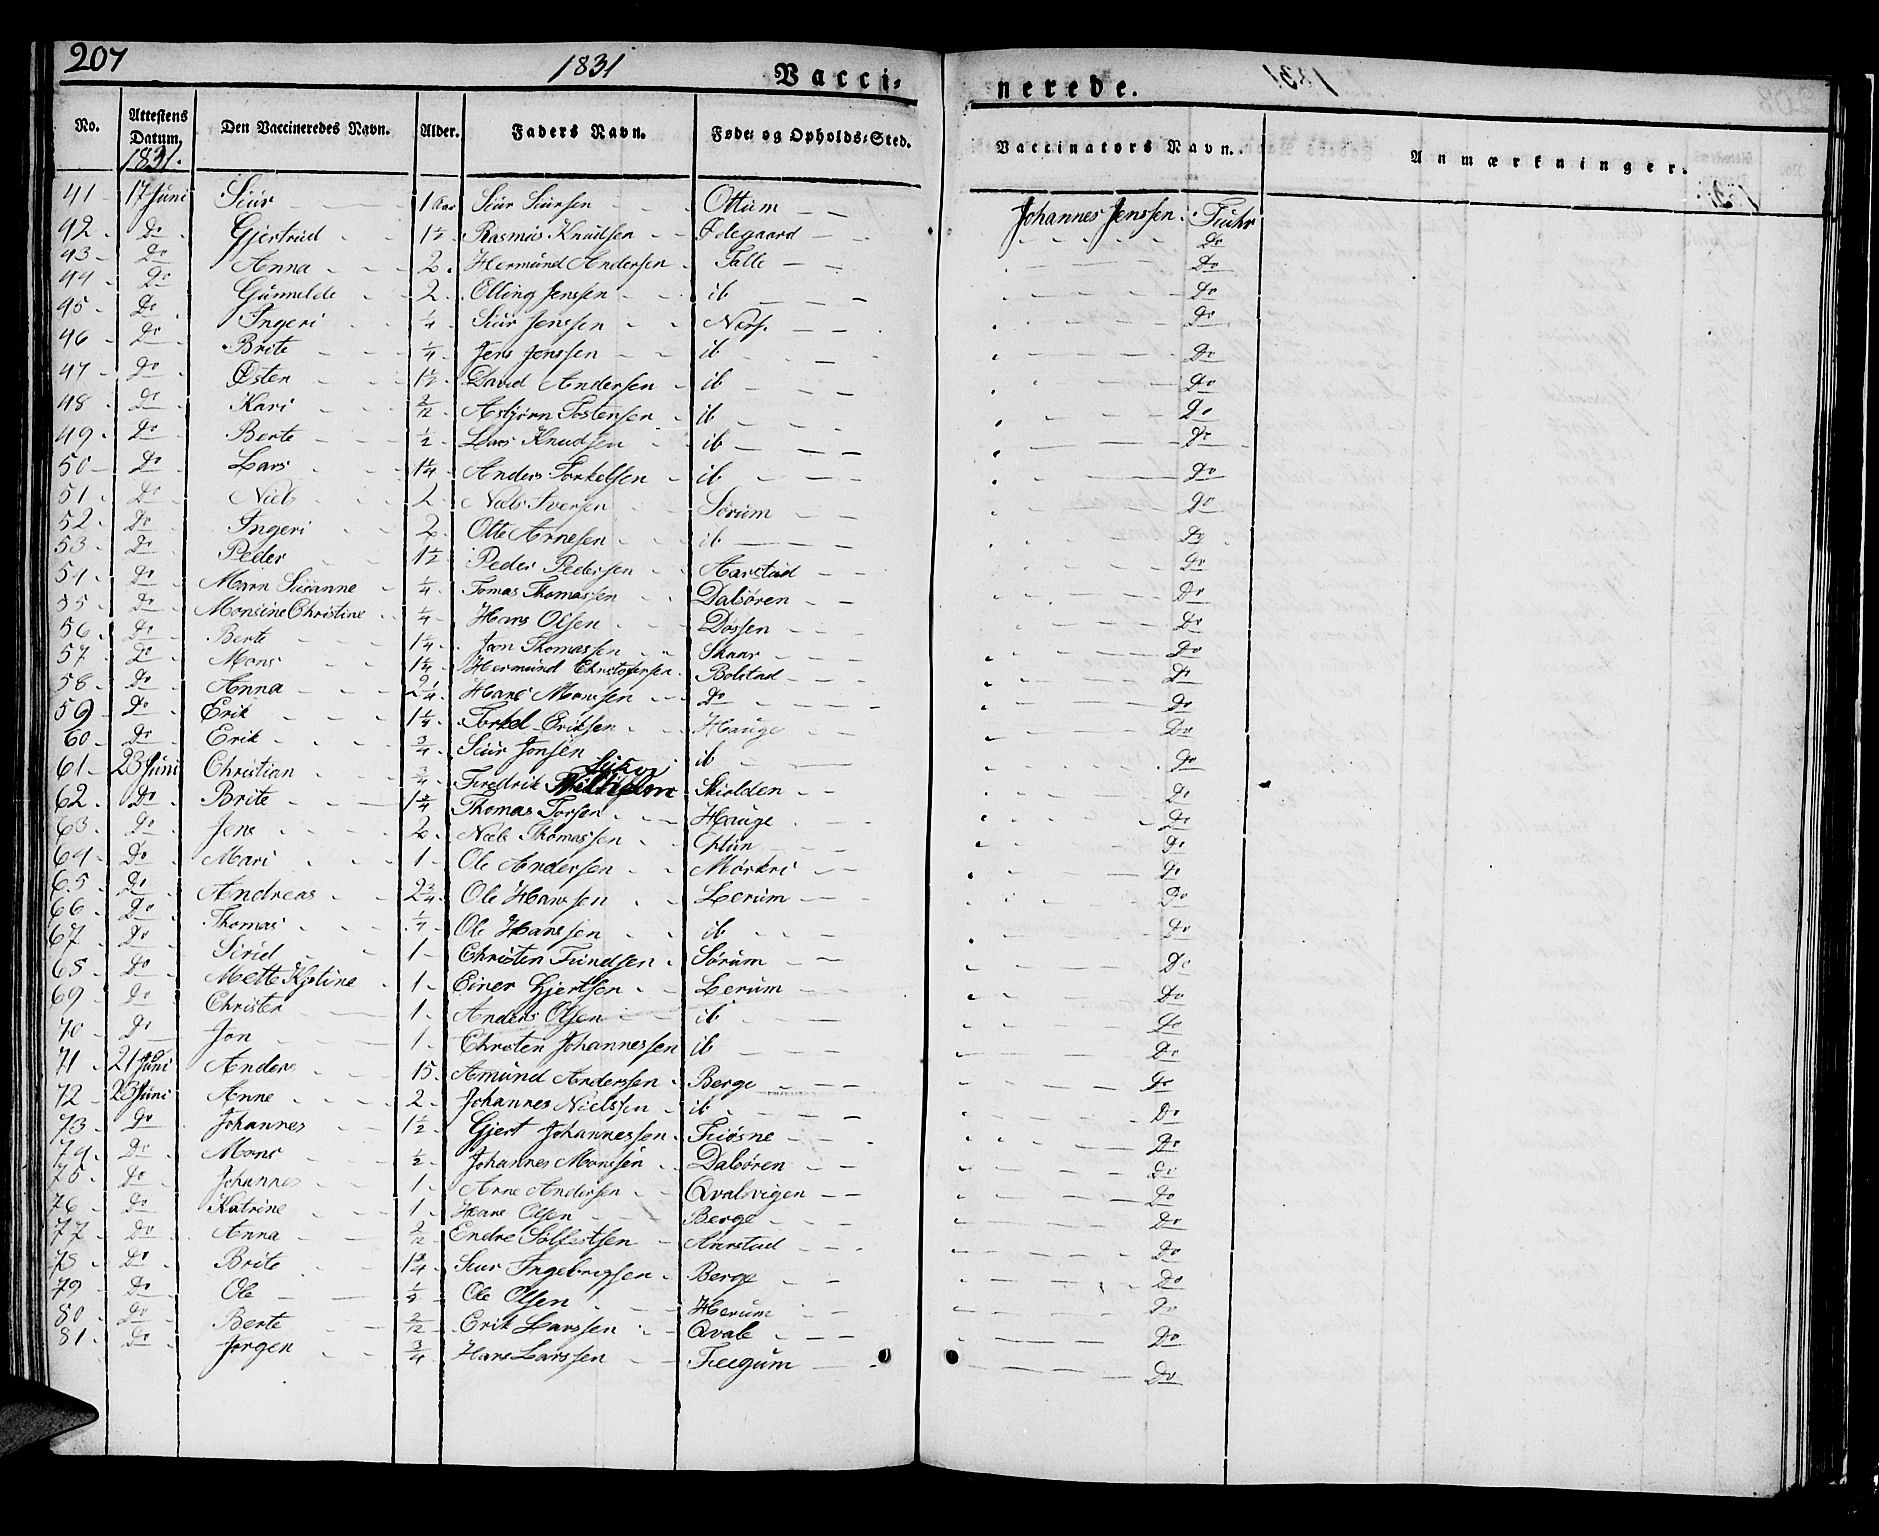 207
1831
Vacci-
nerede.
No. Attestens Datum. Den Vaccineredes Navn. Alder. Faders Navn. Føde- og Opholds-Sted. Vaccinators Navn. Anmærkninger.
1831.
41 - 17 Juni Siur 1 Aar Siur Siursen Ottum Johannes Jenssen Fuhr
42 - Do Gjertrud 1½ Rasmus Knudsen Ødegaard Do
43 - Do Anna 2 Hermund Andersen Talle Do
44 - Do Gunnelde 2 Olling Jenssen ib Do
45 - Do Ingeri ¼ Siur Jenssen Nærs. Do
46 - Do Brite ¼ Jens Jenssen ib Do
47 - Do Østen 1½ David Andersen ib Do
48 - Do Kari 2/12 Asbjørn Tostensen ib Do
49 - Do Berte ½ Lars Knudsen ib Do
50 - Do Lars 1¼ Anders Torkelsen ib Do
51 - Do Niels 2 Niels Iversen Sørum Do
52 - Do Ingeri 2 Otte Arnesen ib Do
53 - Do Peder 1½ Peder Pedersen Aarstad Do
54 - Do Marn Susanne ¼ Tomas Thomassen Dalsøren Do
55 - Do Monsine Christine ¼ Hans Olsen Døssen Do
56 - Do Berte 1¼ Jon Thomassen Skaar Do
57 - Do Mons 1¼ Hermund Christophersen Bolstad Do
58 - Do Anna 2¼ Hans Monssen Do Do
59 - Do Erik 1¼ Torkel Eriksen Hauge Do
60 - Do Erik ¾ Siur Jonsen ib Do
61 - 23 Juni Christian ¾ Fredrik Skiolden Do
62 - Do Brite 1¾ Thomas Torsen Hauge Do
63 - Do Jens 2 Niels Thomassen Optun Do
64 - Do Mari 1 Ole Andersen Mørkri Do
65 - Do Andreas 2¾ Ole Hanssen Lerum Do
66 - Do Thomas ¼ Ole Hanssen ib Do
67 - Do Sirid 1 Christen Trundsen Sørum Do
68 - Do Mette Kjstine 1 Einer Gjertsen Lerum Do
69 - Do Christer 1 Anders Olsen ib Do
70 - Do Jon 1 Christen Johannessen ib Do
71 - 21 Juni Anders 15 Amund Anderssen Berge Do
72 - 23 Juni Anne 2 Johannes Nielssen ib Do
73 - Do Johannes 1½ Gjert Johannessen Fiøsne Do
74 - Do Mons ½ Johannes Monssen Dalsøren Do
75 - Do Johannes 1 Arne Andersen Qvalsvigen Do
76 - Do Katrine 1 Hans Olsen Berge Do
77 - Do Anna 2/12 Endre Solfestsen Aarstad Do
78 - Do Brite 1¾ Siur Ingebrigsen Berge Do
79 - Do Ole ¼ Ole Olsen Herum Do
80 - Do Berte 2/12 Erik Larssen Qvale Do
81 - Do Jørgen ¾ Hans Larssen Feegum Do